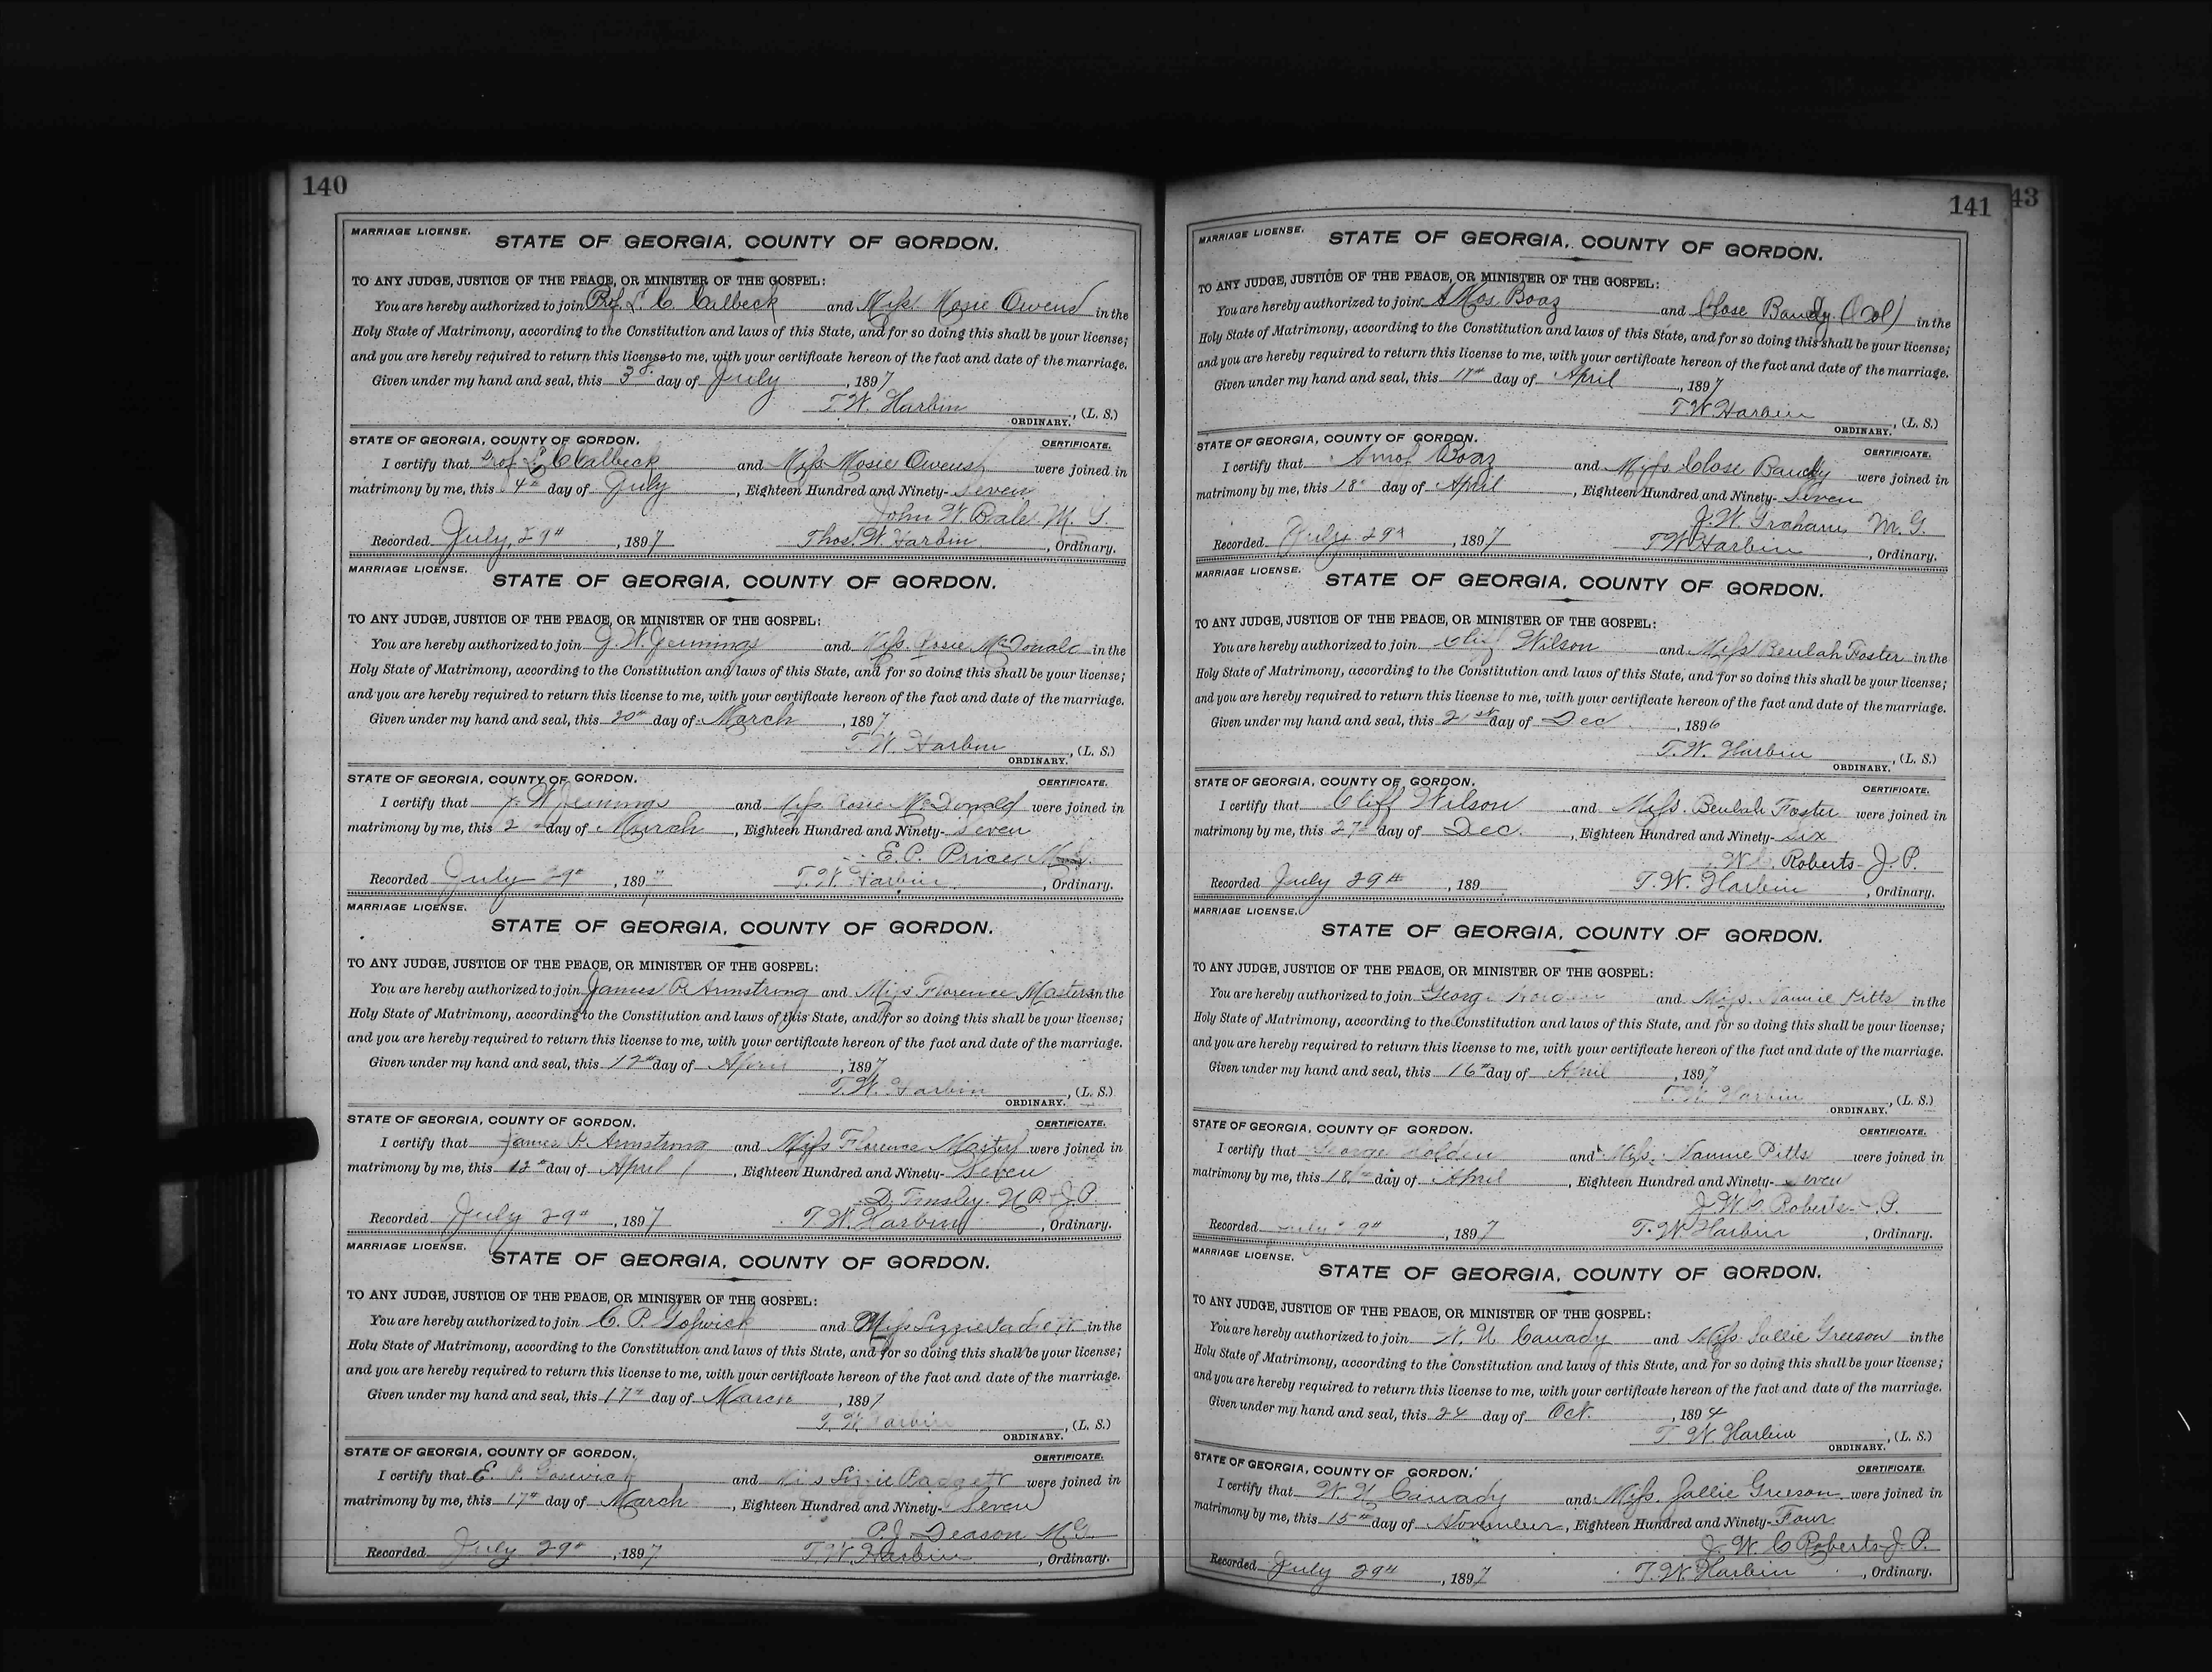 140
MARRIAGE LICENSE.
STATE OF GEORGIA, COUNTY OF GORDON.
TO ANY JUDGE, JUSTICE OF THE PEACE, OR MINISTER OF THE GOSPEL:
You are hereby authorized to join Prof. L C Calbeck and Miss Mosie Owens in the
Holy State of Matrimony, according to the Constitution and laws of this State, and for so doing this shall be your license;
and you are hereby required to return this license to me, with your certificate hereon of the fact and date of the marriage.
Given under my hand and seal, this 3 day of July, 1897
T. W. Harbin, (L. S.)
ORDINARY.
STATE OF GEORGIA, COUNTY OF GORDON. CERTIFICATE.
I certify that Prof L C Calbeck and Miss Mosie Owens were joined in
matrimony by me, this 4th day of July, Eighteen Hundred and Ninety-Seven
John W. Bale M. G.
Recorded July, 29th, 1897 Thos. W. Harbin, Ordinary.
MARRIAGE LICENSE.
STATE OF GEORGIA, COUNTY OF GORDON.
TO ANY JUDGE, JUSTICE OF THE PEACE, OR MINISTER OF THE GOSPEL:
You are hereby authorized to join G. W. Jennings and Miss Rosie McDonald in the
Holy State of Matrimony, according to the Constitution and laws of this State, and for so doing this shall be your license;
and you are hereby required to return this license to me, with your certificate hereon of the fact and date of the marriage.
Given under my hand and seal, this 20th day of March, 1897
T. W. Harbin, (L. S.)
ORDINARY.
STATE OF GEORGIA, COUNTY OF GORDON. CERTIFICATE.
I certify that W Jennings and Miss Rosie McDonald were joined in
matrimony by me, this 2 day of March, Eighteen Hundred and Ninety-Seven
E. P. Price
Recorded July 29th, 189 T. W. Harbin, Ordinary.
MARRIAGE LICENSE.
STATE OF GEORGIA, COUNTY OF GORDON.
TO ANY JUDGE, JUSTICE OF THE PEACE, OR MINISTER OF THE GOSPEL:
You are hereby authorized to join James R. Armstrong and Miss Florence Masters in the
Holy State of Matrimony, according to the Constitution and laws of this State, and for so doing this shall be your license;
and you are hereby required to return this license to me, with your certificate hereon of the fact and date of the marriage.
Given under my hand and seal, this 12th day of April, 1897
T. W. Harbin, (L. S.)
ORDINARY.
STATE OF GEORGIA, COUNTY OF GORDON. CERTIFICATE.
I certify that James R. Armstrong and Miss Florence Masters were joined in
matrimony by me, this 12th day of April, Eighteen Hundred and Ninety-Seven
D. Tinsley N. P. & J. P.
Recorded July 29th, 1897 T. W. Harbin, Ordinary.
MARRIAGE LICENSE.
STATE OF GEORGIA, COUNTY OF GORDON.
TO ANY JUDGE, JUSTICE OF THE PEACE, OR MINISTER OF THE GOSPEL:
You are hereby authorized to join C. P. Goswick and Miss Lizzie Padgett in the
Holy State of Matrimony, according to the Constitution and laws of this State, and for so doing this shall be your license;
and you are hereby required to return this license to me, with your certificate hereon of the fact and date of the marriage.
Given under my hand and seal, this 17th day of March, 1897
T. W. Harbin, (L. S.)
ORDINARY.
STATE OF GEORGIA, COUNTY OF GORDON. CERTIFICATE.
I certify that E. P. Goswick and Miss Lizzie Padgett were joined in
matrimony by me, this 17th day of March, Eighteen Hundred and Ninety-Seven
P. J. Deason M. G.
Recorded July 29th, 1897 T. W. Harbin, Ordinary.
141
43
MARRIAGE LICENSE.
STATE OF GEORGIA, COUNTY OF GORDON.
TO ANY JUDGE, JUSTICE OF THE PEACE, OR MINISTER OF THE GOSPEL:
You are hereby authorized to join Amos Boaz and Close Bandy (Col) in the
Holy State of Matrimony, according to the Constitution and laws of this State, and for so doing this shall be your license;
and you are hereby required to return this license to me, with your certificate hereon of the fact and date of the marriage.
Given under my hand and seal, this 17th day of April, 1897
T. W. Harbin, (L. S.)
ORDINARY.
STATE OF GEORGIA, COUNTY OF GORDON. CERTIFICATE.
I certify that Amos Boaz and Miss Close Bandy were joined in
matrimony by me, this 18th day of April, Eighteen Hundred and Ninety-Seven
J. W. Graham, M. G.
Recorded July 29th, 1897 T. W. Harbin, Ordinary.
MARRIAGE LICENSE.
STATE OF GEORGIA, COUNTY OF GORDON.
TO ANY JUDGE, JUSTICE OF THE PEACE, OR MINISTER OF THE GOSPEL:
You are hereby authorized to join Cliff Wilson and Miss Beulah Foster in the
Holy State of Matrimony, according to the Constitution and laws of this State, and for so doing this shall be your license;
and you are hereby required to return this license to me, with your certificate hereon of the fact and date of the marriage.
Given under my hand and seal, this 21st day of Dec, 1896
T. W. Harbin, (L. S.)
ORDINARY.
STATE OF GEORGIA, COUNTY OF GORDON. CERTIFICATE.
I certify that Cliff Wilson and Miss. Beulah Foster were joined in
matrimony by me, this 27th day of Dec., Eighteen Hundred and Ninety-Six
W C Roberts J. P.
Recorded July 29th, 189 T. W. Harbin, Ordinary.
MARRIAGE LICENSE.
STATE OF GEORGIA, COUNTY OF GORDON.
TO ANY JUDGE, JUSTICE OF THE PEACE, OR MINISTER OF THE GOSPEL:
You are hereby authorized to join George Holden and Miss. Nannie Pitts in the
Holy State of Matrimony, according to the Constitution and laws of this State, and for so doing this shall be your license;
and you are hereby required to return this license to me, with your certificate hereon of the fact and date of the marriage.
Given under my hand and seal, this 16th day of April, 1897
T. W. Harbin, (L. S.)
ORDINARY.
STATE OF GEORGIA, COUNTY OF GORDON. CERTIFICATE.
I certify that George Holden and Miss. Nannie Pitts were joined in
matrimony by me, this 18th day of April, Eighteen Hundred and Ninety-Seven
J. W. C. Roberts J. P.
Recorded July 29th, 1897 T. W. Harbin, Ordinary.
MARRIAGE LICENSE.
STATE OF GEORGIA, COUNTY OF GORDON.
TO ANY JUDGE, JUSTICE OF THE PEACE, OR MINISTER OF THE GOSPEL:
You are hereby authorized to join W. N Canady and Miss. Sallie Greeson in the
Holy State of Matrimony, according to the Constitution and laws of this State, and for so doing this shall be your license;
and you are hereby required to return this license to me, with your certificate hereon of the fact and date of the marriage.
Given under my hand and seal, this 24 day of Oct., 1894
T. W. Harbin, (L. S.)
ORDINARY.
STATE OF GEORGIA, COUNTY OF GORDON. CERTIFICATE.
I certify that W. N. Canady and Miss. Sallie Greeson were joined in
matrimony by me, this 15th day of November, Eighteen Hundred and Ninety-Four
J. W. C Roberts J. P.
Recorded July 29th, 1897 T. W. Harbin, Ordinary.